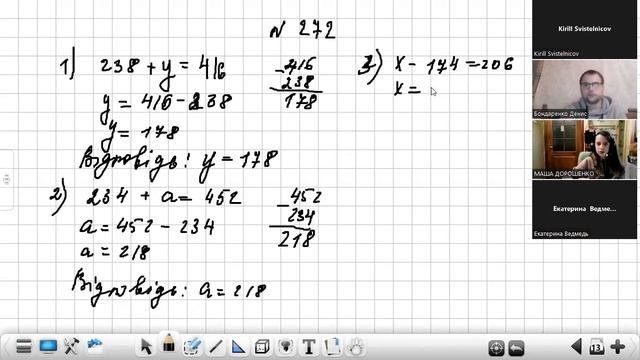 N 272
1) 238 + y = 416
y = 416 - 238
y = 178
Відповідь: y = 178
- 416
238
178
2) 234 + a = 452
a = 452 - 234
a = 218
Відповідь: a = 218
- 452
234
218
3) x - 174 = 206
x =
Kirill Svistelnicov
Kirill Svistelnicov
Бондаренко Денис
МАША ДОРОШЕНКО
Екатерина Ведме...
Екатерина Ведмедь
T
13